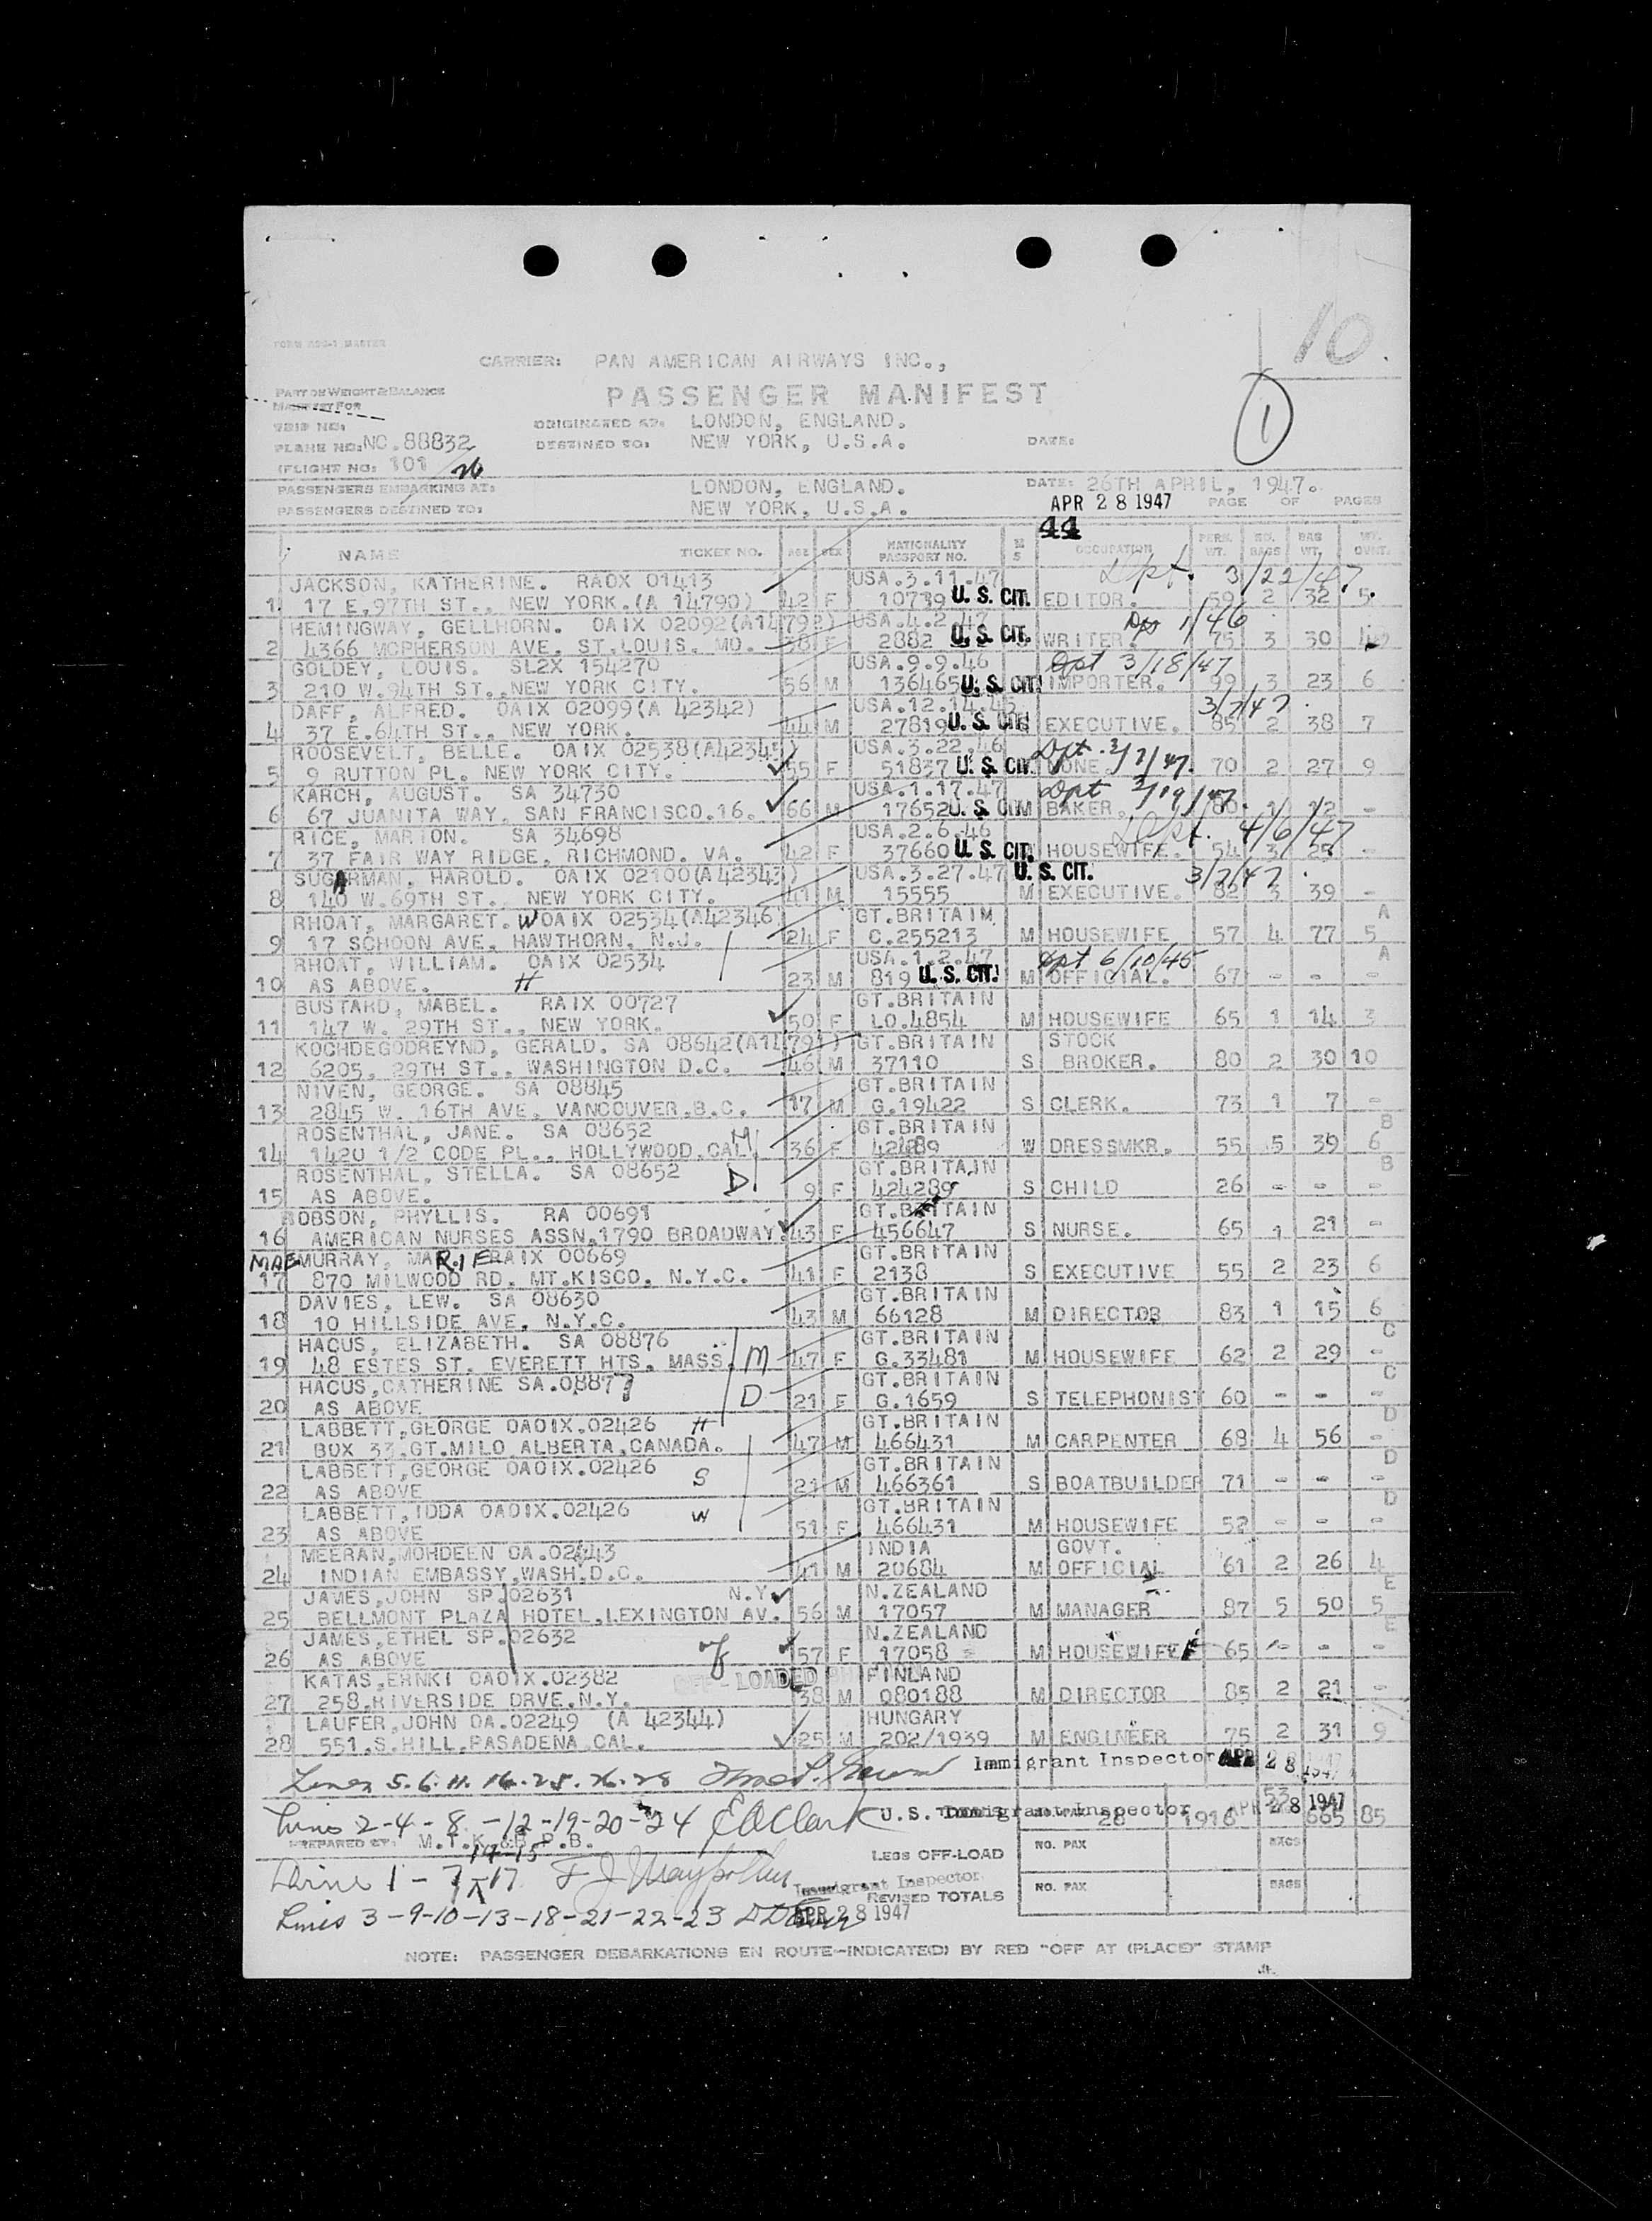 10
FORM ASG-1 MASTER
CARRIER: PAN AMERICAN AIRWAYS INC.,
PART OF WEIGHT & BALANCE
PASSENGER MANIFEST
MANIFEST FOR
1
TRIP NO: ORIGINATED AT: LONDON, ENGLAND.
PLANE NO: NC.88832 DESTINED TO: NEW YORK, U.S.A. DATE:
(FLIGHT NO: 101/26
PASSENGERS EMBARKING AT: LONDON, ENGLAND. DATE: 26TH APRIL, 1947.
PASSENGERS DESTINED TO: NEW YORK, U.S.A. APR 28 1947 PAGE OF PAGES
44
NAME TICKET NO. AGE SEX NATIONALITY PASSPORT NO. M S OCCUPATION PERS. WT. NO. BAGS BAG WT. WT. OVNT.
JACKSON, KATHERINE. RAOX 01413 USA.3.11.47 Dpt. 3/22/47
1 17 E,97TH ST., NEW YORK.(A 14790) 42 F 10739 U. S. CIT. EDITOR. 59 2 32 5.
HEMINGWAY, GELLHORN. OAIX 02092(A14792) USA.4.2.47 1/46
2 4366 MCPHERSON AVE. ST.LOUIS. MO. 38 F 2882 U. S. CIT. WRITER. 75 3 30
GOLDEY, LOUIS. SL2X 154270 USA.9.9.46 Dpt 3/18/47
3 210 W.94TH ST., NEW YORK CITY. 56 M 136465 U. S. CIT. IMPORTER. 99 3 23 6
DAFF, ALFRED. OAIX 02099(A 42342) USA.12.14.45 3/7/47
4 37 E.64TH ST., NEW YORK. 44 M 27819 U. S. CIT. EXECUTIVE. 85 2 38 7
ROOSEVELT, BELLE. OAIX 02538(A42345) USA.3.22.46 Dpt. 3/7/47.
5 9 RUTTON PL. NEW YORK CITY. 55 F 51837 U. S. CIT. NONE. 70 2 27 9
KARCH, AUGUST. SA 34730 USA.1.17.47 Dpt 3/19/47.
6 67 JUANITA WAY. SAN FRANCISCO.16. 66 M 17652 U. S. CIT. M BAKER. 80 1 12 -
RICE, MARION. SA 34698 USA.2.6.46 Dpt. 4/6/47
7 37 FAIR WAY RIDGE, RICHMOND. VA. 42 F 37660 U. S. CIT. HOUSEWIFE. 54 3 25 -
SUGARMAN, HAROLD. OAIX 02100(A42343) USA.3.27.47 U. S. CIT. 3/7/47.
8 140 W.69TH ST., NEW YORK CITY. 41 M 15555 M EXECUTIVE. 82 3 39 -
RHOAT, MARGARET. W OAIX 02534(A42346 GT.BRITAIM A
9 17 SCHOON AVE. HAWTHORN. N.J. 24 F C.255213 M HOUSEWIFE 57 4 77 5
RHOAT, WILLIAM. OAIX 02534 USA.1.2.47 Dpt 6/10/45 A
10 AS ABOVE. H 23 M 819 U. S. CIT. M OFFICIAL. 67 - - -
BUSTARD, MABEL. RAIX 00727 GT.BRITAIN
11 147 W. 29TH ST., NEW YORK. 50 F LO.4854 M HOUSEWIFE 65 1 14 3
KOCHDEGODREYND, GERALD. SA 08642(A14791) GT.BRITAIN STOCK
12 6205, 29TH ST., WASHINGTON D.C. 46 M 37110 S BROKER. 80 2 30 10
NIVEN, GEORGE. SA 08845 GT.BRITAIN
13 2845 W. 16TH AVE. VANCOUVER.B.C. 17 M G.19422 S CLERK. 73 1 7 -
ROSENTHAL, JANE. SA 08652 M GT.BRITAIN B
14 1420 1/2 CODE PL., HOLLYWOOD.CAL. 36 F 424289 W DRESSMKR. 55 5 39 6
ROSENTHAL, STELLA. SA 08652 D GT.BRITAIN B
15 AS ABOVE. 9 F 424289 S CHILD 26 - - -
ROBSON, PHYLLIS. RA 00691 GT.BRITAIN
16 AMERICAN NURSES ASSN.1790 BROADWAY. 43 F 456647 S NURSE. 65 1 21 -
MAE MURRAY, MARIE RAIX 00669 GT.BRITAIN
17 870 MILWOOD RD. MT.KISCO. N.Y.C. 41 F 2138 S EXECUTIVE 55 2 23 6
DAVIES, LEW. SA 08630 GT.BRITAIN
18 10 HILLSIDE AVE. N.Y.C. 43 M 66128 M DIRECTOR 83 1 15 6
HACUS, ELIZABETH. SA 08876 GT.BRITAIN C
19 48 ESTES ST. EVERETT HTS. MASS. M 47 F G.33481 M HOUSEWIFE 62 2 29 -
HACUS,CATHERINE SA.08877 GT.BRITAIN C
20 AS ABOVE D 21 F G.1659 S TELEPHONIST 60 - - -
LABBETT,GEORGE OAOIX.02426 H GT.BRITAIN D
21 BOX 33.GT.MILO ALBERTA.CANADA. 47 M 466431 M CARPENTER 68 4 56 -
LABBETT,GEORGE OAOIX.02426 S GT.BRITAIN D
22 AS ABOVE 21 M 466361 S BOATBUILDER 71 - - -
LABBETT,IDDA OAOIX.02426 W GT.BRITAIN D
23 AS ABOVE 51 F 466431 M HOUSEWIFE 52 - - -
MEERAN,MOHDEEN OA.02443 INDIA GOVT.
24 INDIAN EMBASSY.WASH.D.C. 41 M 20684 M OFFICIAL 61 2 26 4
JAMES,JOHN SP.02631 N.Y. N.ZEALAND E
25 BELLMONT PLAZA HOTEL,LEXINGTON AV. 56 M 17057 M MANAGER 87 5 50 5
JAMES,ETHEL SP.02632 N.ZEALAND E
26 AS ABOVE 57 F 17058 M HOUSEWIFE 65 - - -
KATAS,ERNKI OAOIX.02382 OFF-LOADED FINLAND
27 258.RIVERSIDE DRVE.N.Y. 38 M 080188 M DIRECTOR 85 2 21 -
LAUFER,JOHN OA.02249 (A 42344) HUNGARY
28 551.S.HILL.PASADENA.CAL. 25 M 202/1939 M ENGINEER 75 2 31 9
Lines 5. 6. 11. 16. 25. 26. 28 Immigrant Inspector APR 28 1947
Lines 2-4-8-12-19-20-24 E A Clark U.S. Immigrant Inspector 28 1916 53 APR 28 1947 665 85
PREPARED BY: M.T.K. &B.P.B. NO. PAX BAGS
14-15 LESS OFF-LOAD
Line 1-7-17 Immigrant Inspector
REVISED TOTALS NO. PAX BAGS
Lines 3-9-10-13-18-21-22-23 APR 28 1947
NOTE: PASSENGER DEBARKATIONS EN ROUTE-INDICATE(D) BY RED "OFF AT (PLACE)" STAMP